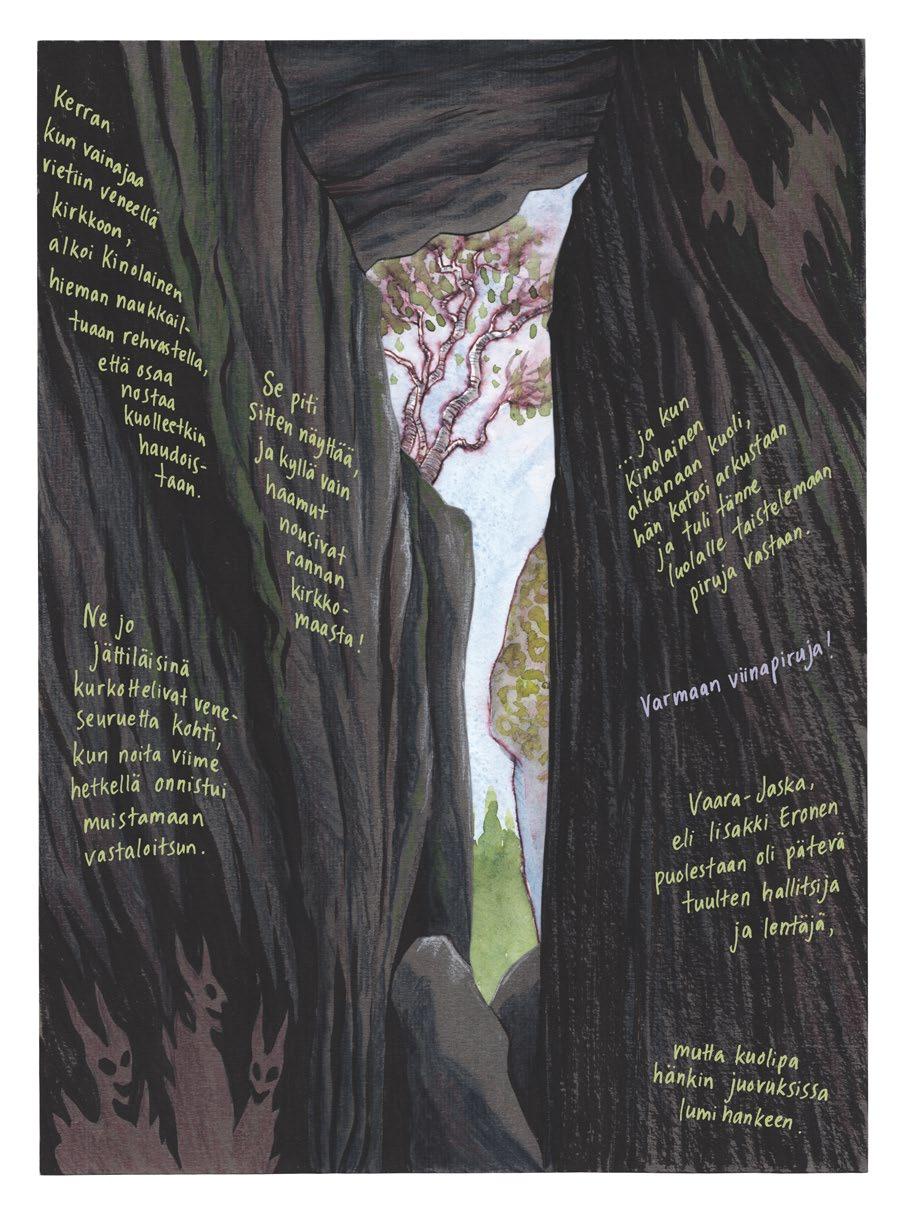 Kerran
kun vainajaa
vietiin veneellä
kirkkoon,
alkoi Kinolainen
hieman naukkail-
tuaan rehvastella,
että osaa
nostaa
kuolleetkin
haudois-
taan.
Se piti
sitten näyttää,
ja kyllä vain
haamut
nousivat
rannan
kirkko-
maasta!
Ne jo
jättiläisinä
kurkottelivat vene-
seuruetta kohti,
kun noita viime
hetkellä onnistui
muistamaan
vastaloitsun.
...ja kun
Kinolainen
aikanaan kuoli,
hän katosi arkustaan
ja tuli tänne
luolalle taistelemaan
piruja vastaan.
Varmaan viinapiruja!
Vaara-Jaska,
eli Iisakki Eronen
puolestaan oli pätevä
tuulten hallitsija
ja lentäjä,
mutta kuolipa
hänkin juovuksissa
lumihankeen.